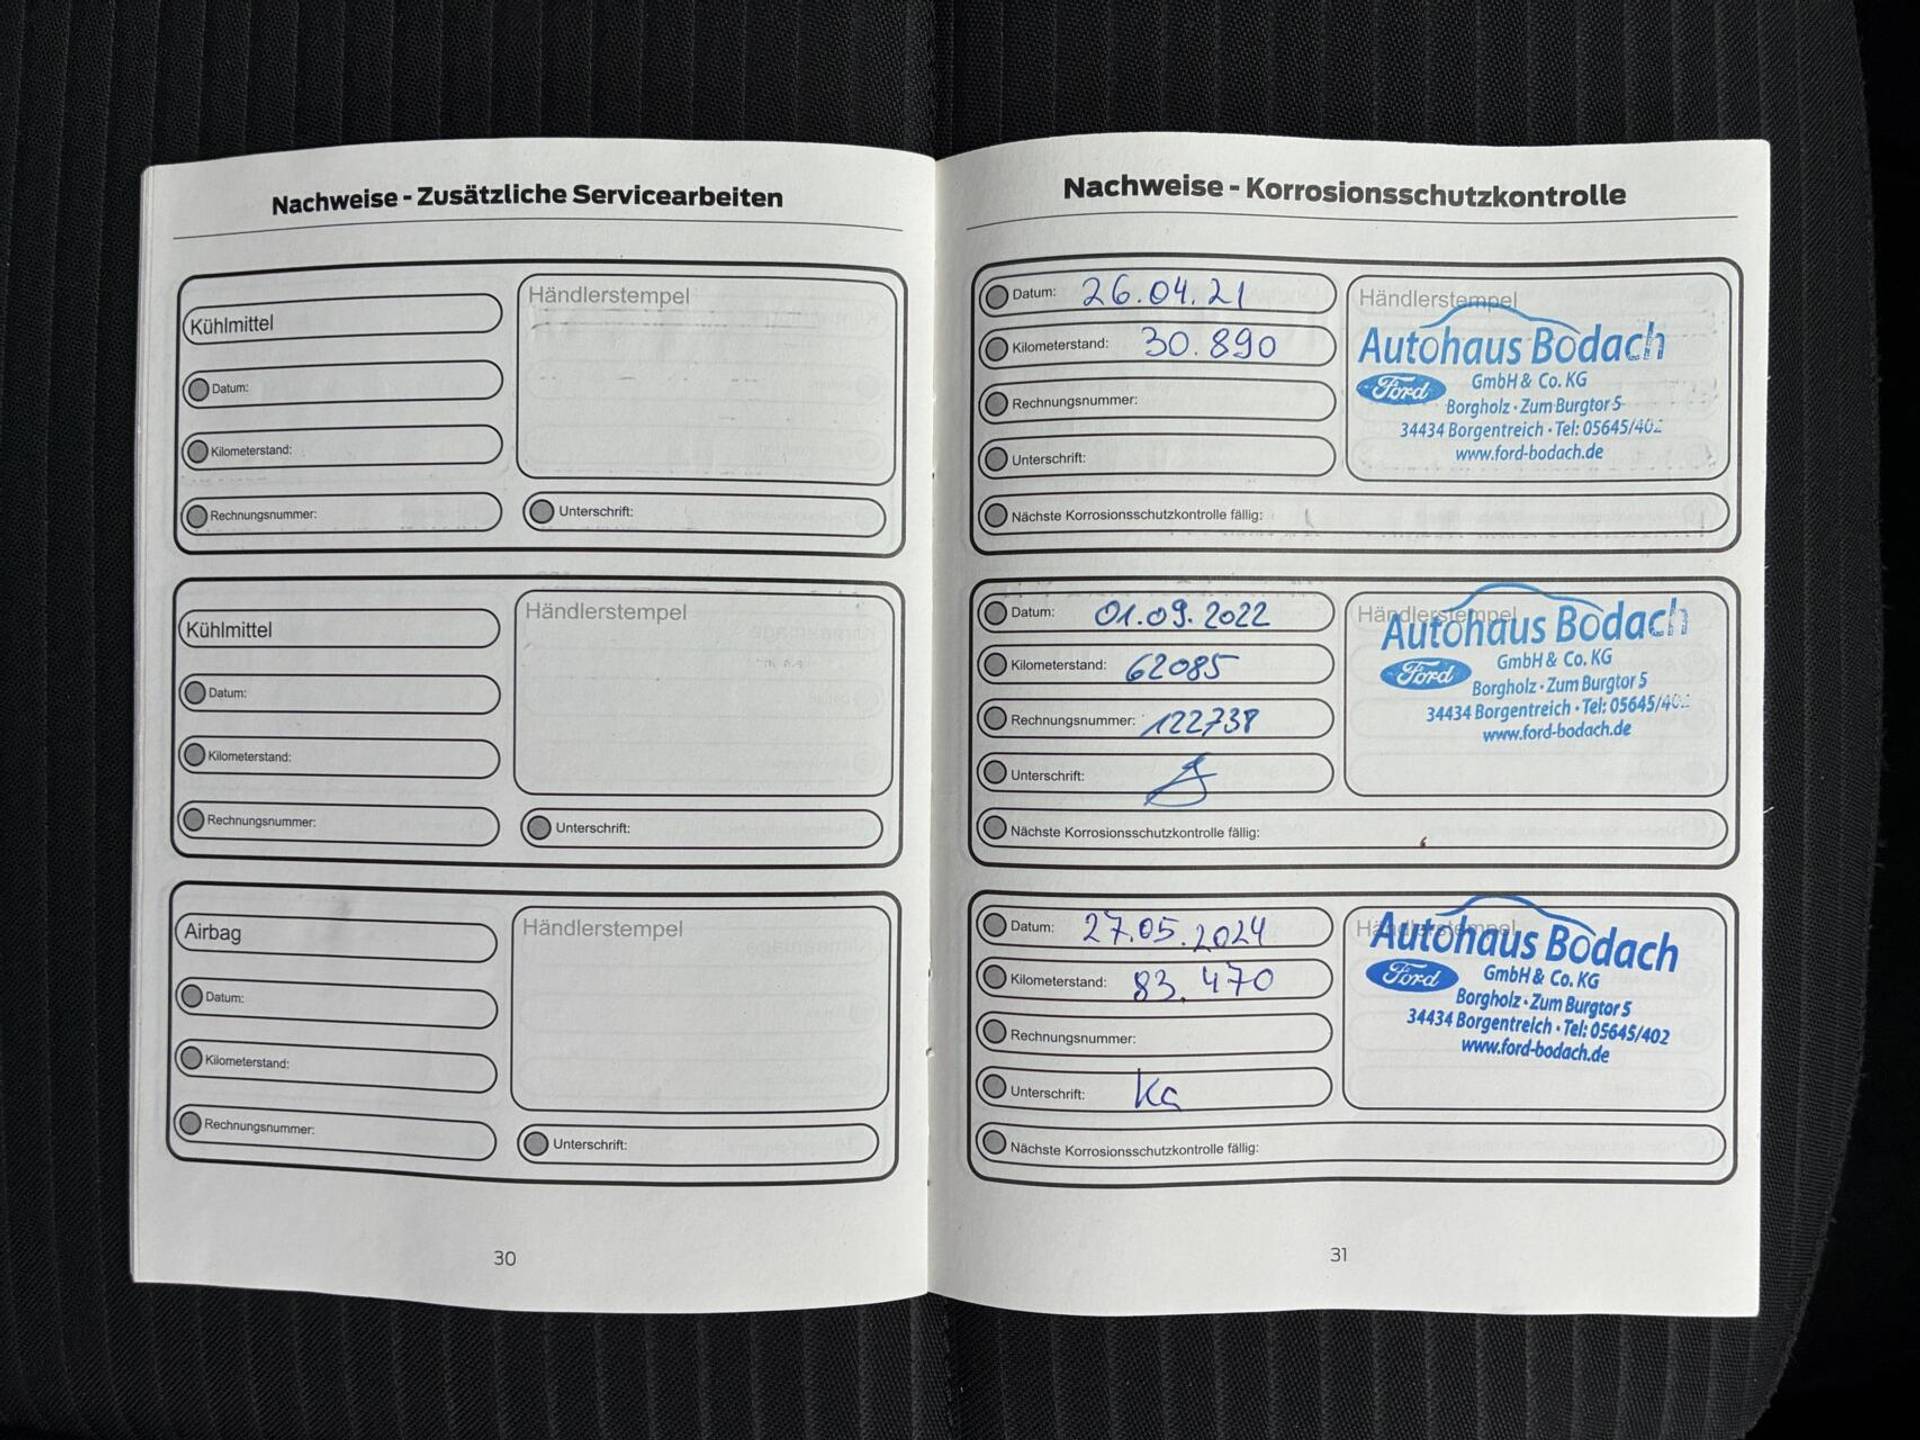 Nachweise - Zusätzliche Servicearbeiten
Kühlmittel
Händlerstempel
Datum:
Kilometerstand:
Rechnungsnummer:
Unterschrift:
Kühlmittel
Händlerstempel
Datum:
Kilometerstand:
Rechnungsnummer:
Unterschrift:
Airbag
Händlerstempel
Datum:
Kilometerstand:
Rechnungsnummer:
Unterschrift:
30
Nachweise - Korrosionsschutzkontrolle
Datum: 26.04.21
Kilometerstand: 30.890
Rechnungsnummer:
Unterschrift:
Händlerstempel
Autohaus Bodach
Ford GmbH & Co. KG
Borgholz · Zum Burgtor 5
34434 Borgentreich · Tel: 05645/402
www.ford-bodach.de
Nächste Korrosionsschutzkontrolle fällig:
Datum: 01.09.2022
Kilometerstand: 62085
Rechnungsnummer: 122738
Unterschrift:
Händlerstempel
Autohaus Bodach
Ford GmbH & Co. KG
Borgholz · Zum Burgtor 5
34434 Borgentreich · Tel: 05645/402
www.ford-bodach.de
Nächste Korrosionsschutzkontrolle fällig:
Datum: 27.05.2024
Kilometerstand: 83.470
Rechnungsnummer:
Unterschrift:
Händlerstempel
Autohaus Bodach
Ford GmbH & Co. KG
Borgholz · Zum Burgtor 5
34434 Borgentreich · Tel: 05645/402
www.ford-bodach.de
Nächste Korrosionsschutzkontrolle fällig:
31